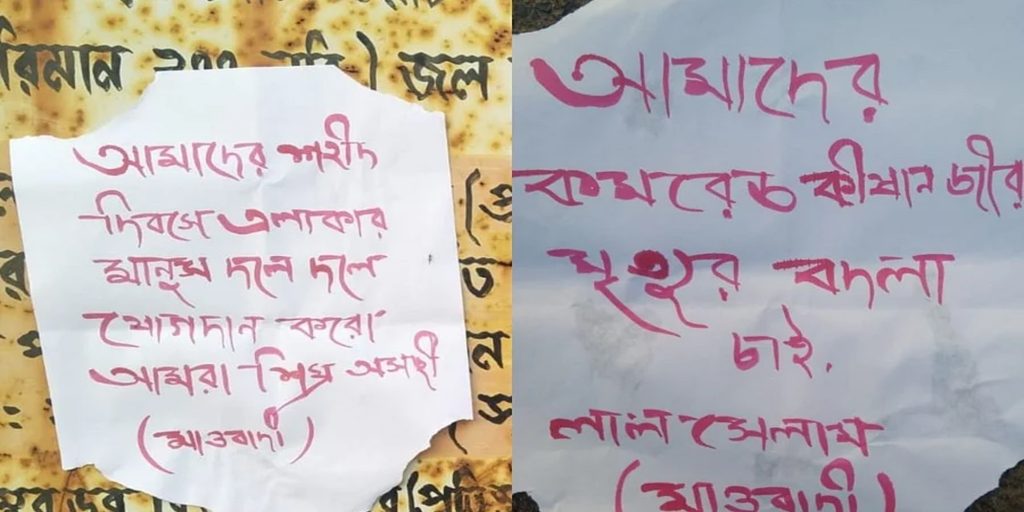 রিমান ২০০ জল
আমাদের শহীদ
দিবসে এলাকার
মানুষ দলে দলে
যোগদান করো
আমরা শিঘ্র আসছী
(মাওবাদী)
আমাদের
কমরেড কীষান জীর
মৃত্যুর বদলা
চাই.
লাল সেলাম
(মাওবাদী)